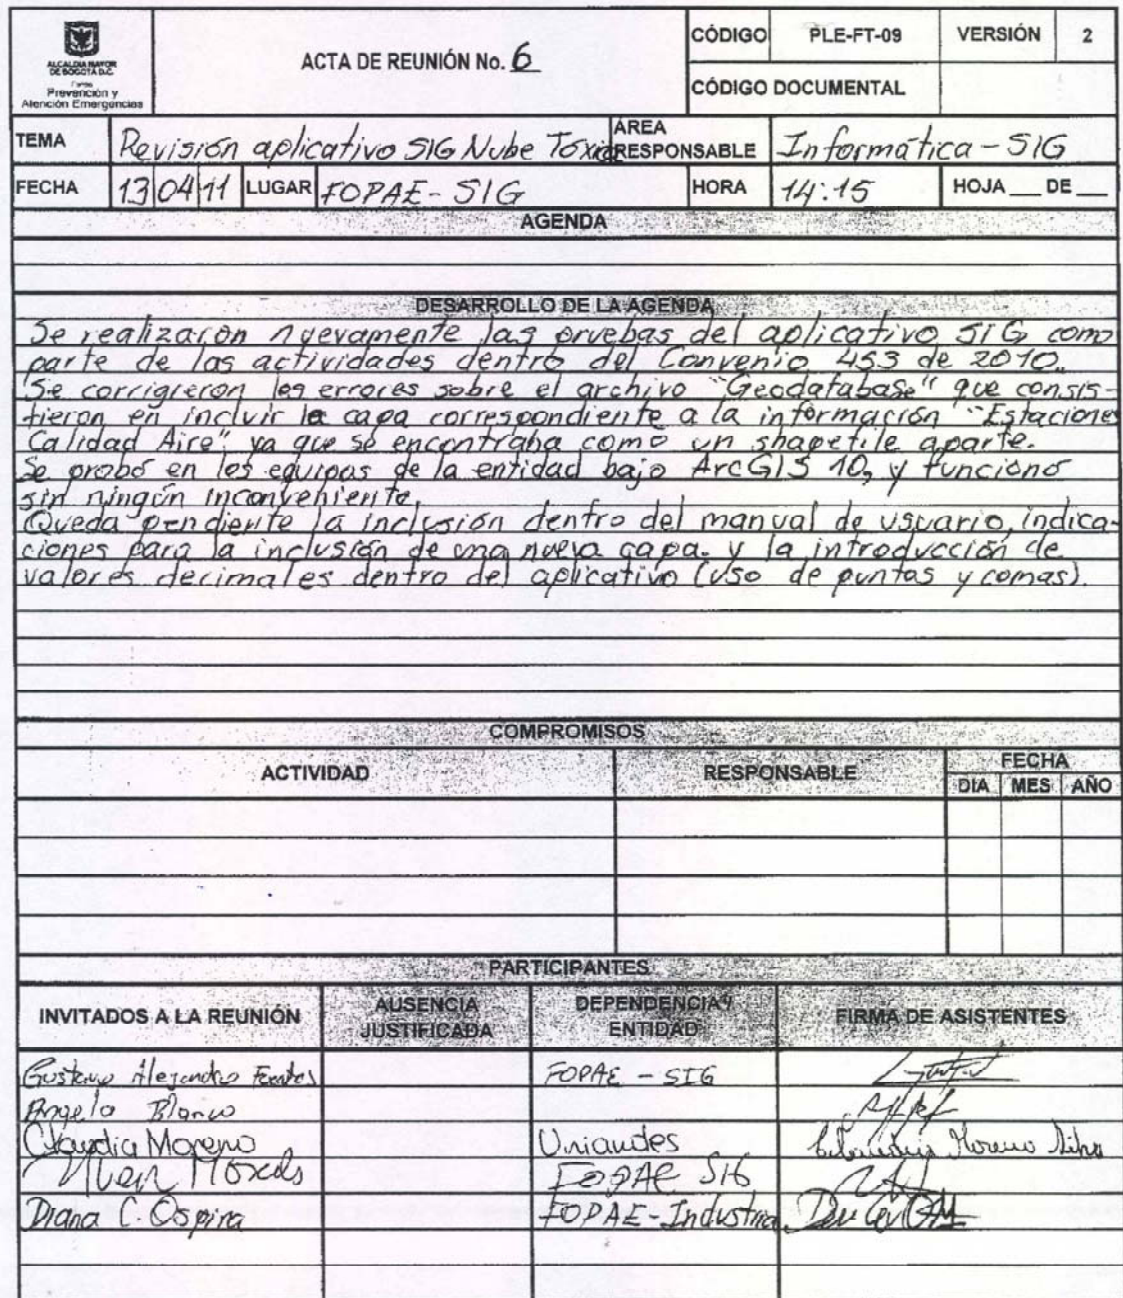 ALCALDIA MAYOR
DE BOGOTÁ D.C.
Fondo
Prevención y
Atención Emergencias
ACTA DE REUNIÓN No. 6
CÓDIGO PLE-FT-09 VERSIÓN 2
CÓDIGO DOCUMENTAL
TEMA Revisión aplicativo SIG Nube Tóxica ÁREA RESPONSABLE Informática - SIG
FECHA 13 04 11 LUGAR FOPAE - SIG HORA 14:15 HOJA ___ DE ___
AGENDA
DESARROLLO DE LA AGENDA
Se realizaron nuevamente las pruebas del aplicativo SIG como
parte de las actividades dentro del Convenio 453 de 2010.
Se corrigieron los errores sobre el archivo "Geodatabase" que consis-
tieron en incluir la capa correspondiente a la información "Estaciones
Calidad Aire", ya que se encontraba como un shapefile aparte.
Se probó en los equipos de la entidad bajo ArcGIS 10, y funcionó
sin ningún inconveniente.
Queda pendiente la inclusión dentro del manual de usuario, indica-
ciones para la inclusión de una nueva capa. y la introducción de
valores decimales dentro del aplicativo (uso de puntos y comas).
COMPROMISOS
ACTIVIDAD RESPONSABLE FECHA
DIA MES AÑO
PARTICIPANTES
INVITADOS A LA REUNIÓN AUSENCIA JUSTIFICADA DEPENDENCIA Y ENTIDAD FIRMA DE ASISTENTES
Gustavo Alejandro FOPAE - SIG
Angela Blanco
Claudia Moreno Uniandes Moreno
FOPAE SIG
Diana C. Ospina FOPAE - Industria